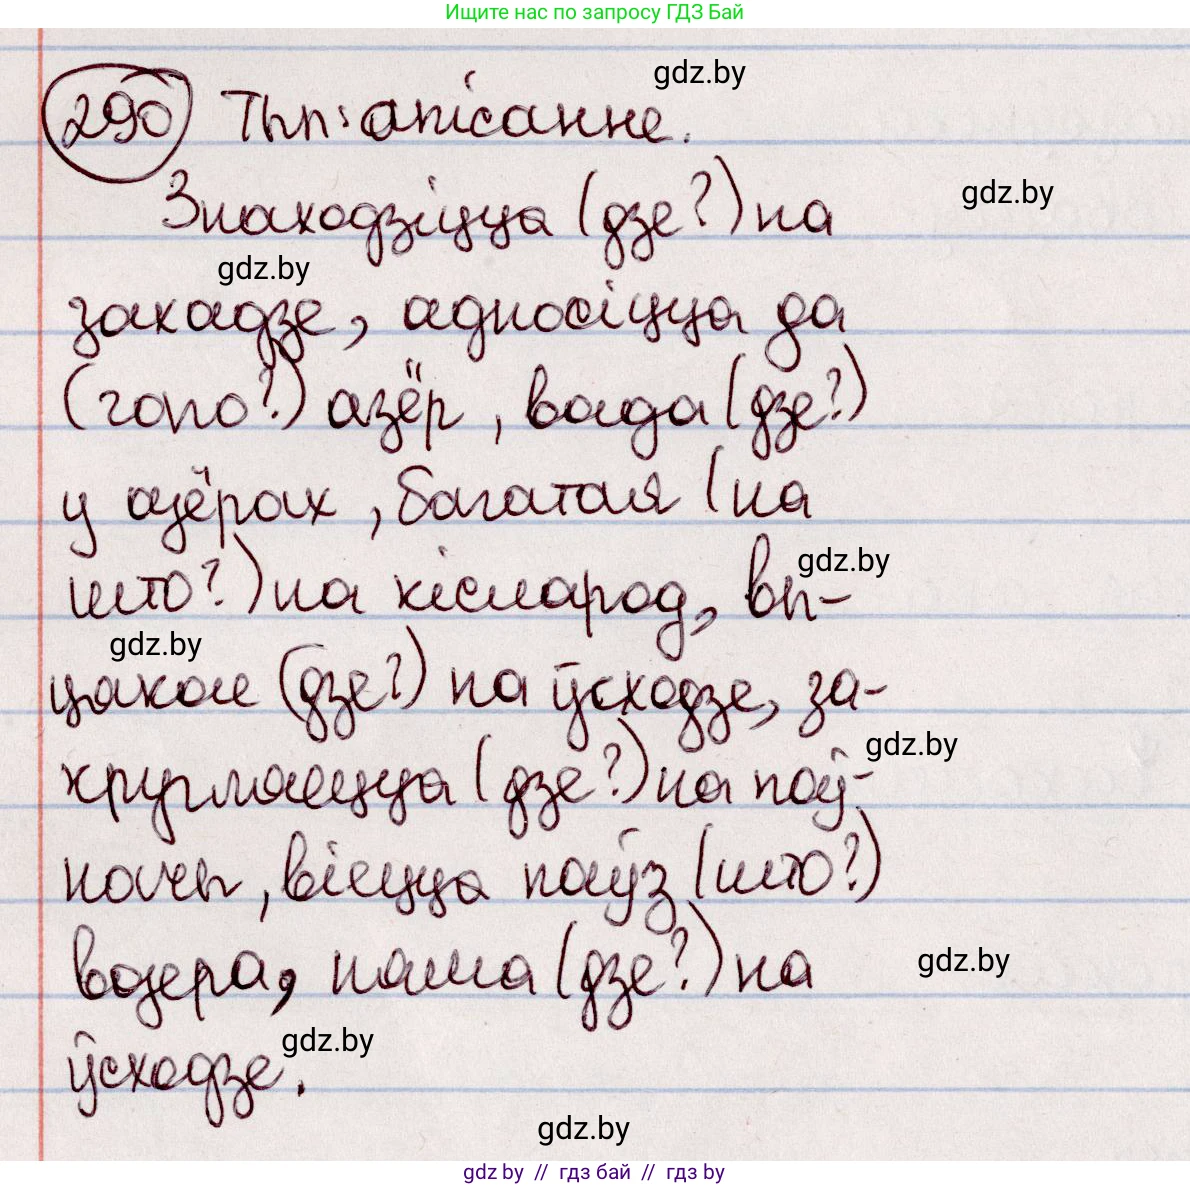 Ищите нас по запросу ГДЗ Бай
gdz.by
290 Тып: апісанне.
Знаходзіцца (дзе?) на
gdz.by
gdz.by
захадзе, адносіцца да
(чаго?) азёр, вада (дзе?)
у азёрах, багатая (на
што?) на кісларод, вы-
gdz.by
gdz.by
цякае (дзе?) на ўсходзе, за-
кругляецца (дзе?) на поў-
gdz.by
начы, віецца паўз (што?)
возера, паша (дзе?) на
gdz.by
ўсходзе.
gdz.by
gdz.by
gdz by // гдз бай // гдз by